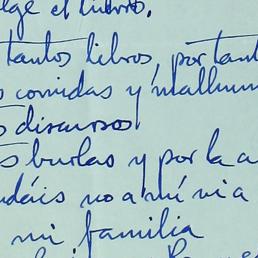 lge el libro.
tantos libros, por tant
s comidas y malhum
s discursos
s burlas y por la a
udáis no a mí ni a
mi familia